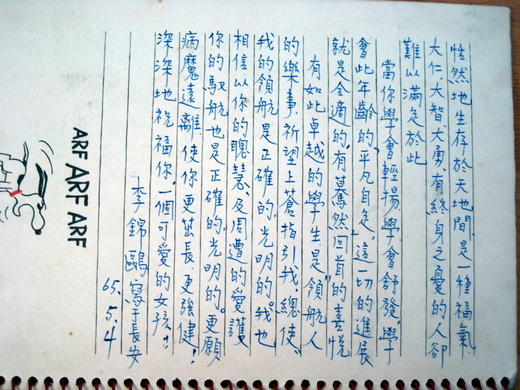 恬然地生存於天地間,是一種福氣
大仁、大智、大勇,有終身之憂的人卻
難以滿足於此
當你學會輕揚,學會舒發,學
會此年齡的"平凡自足"這一切的進展
就是合適的,有驀然回首的喜悅
有如此卓越的學生是"領航人"
的樂事,祈望上蒼指引我,總使
我的領航是正確的,光明的。我也
相信以你的聰慧、及周遭的愛護
你的馭航也是正確的,光明的。更願
病魔遠離,使你更茁長、更強健!
深深地祝福你,一個可愛的女孩!
李錦鷗寫于長安
65.5.4
ARF ARF ARF